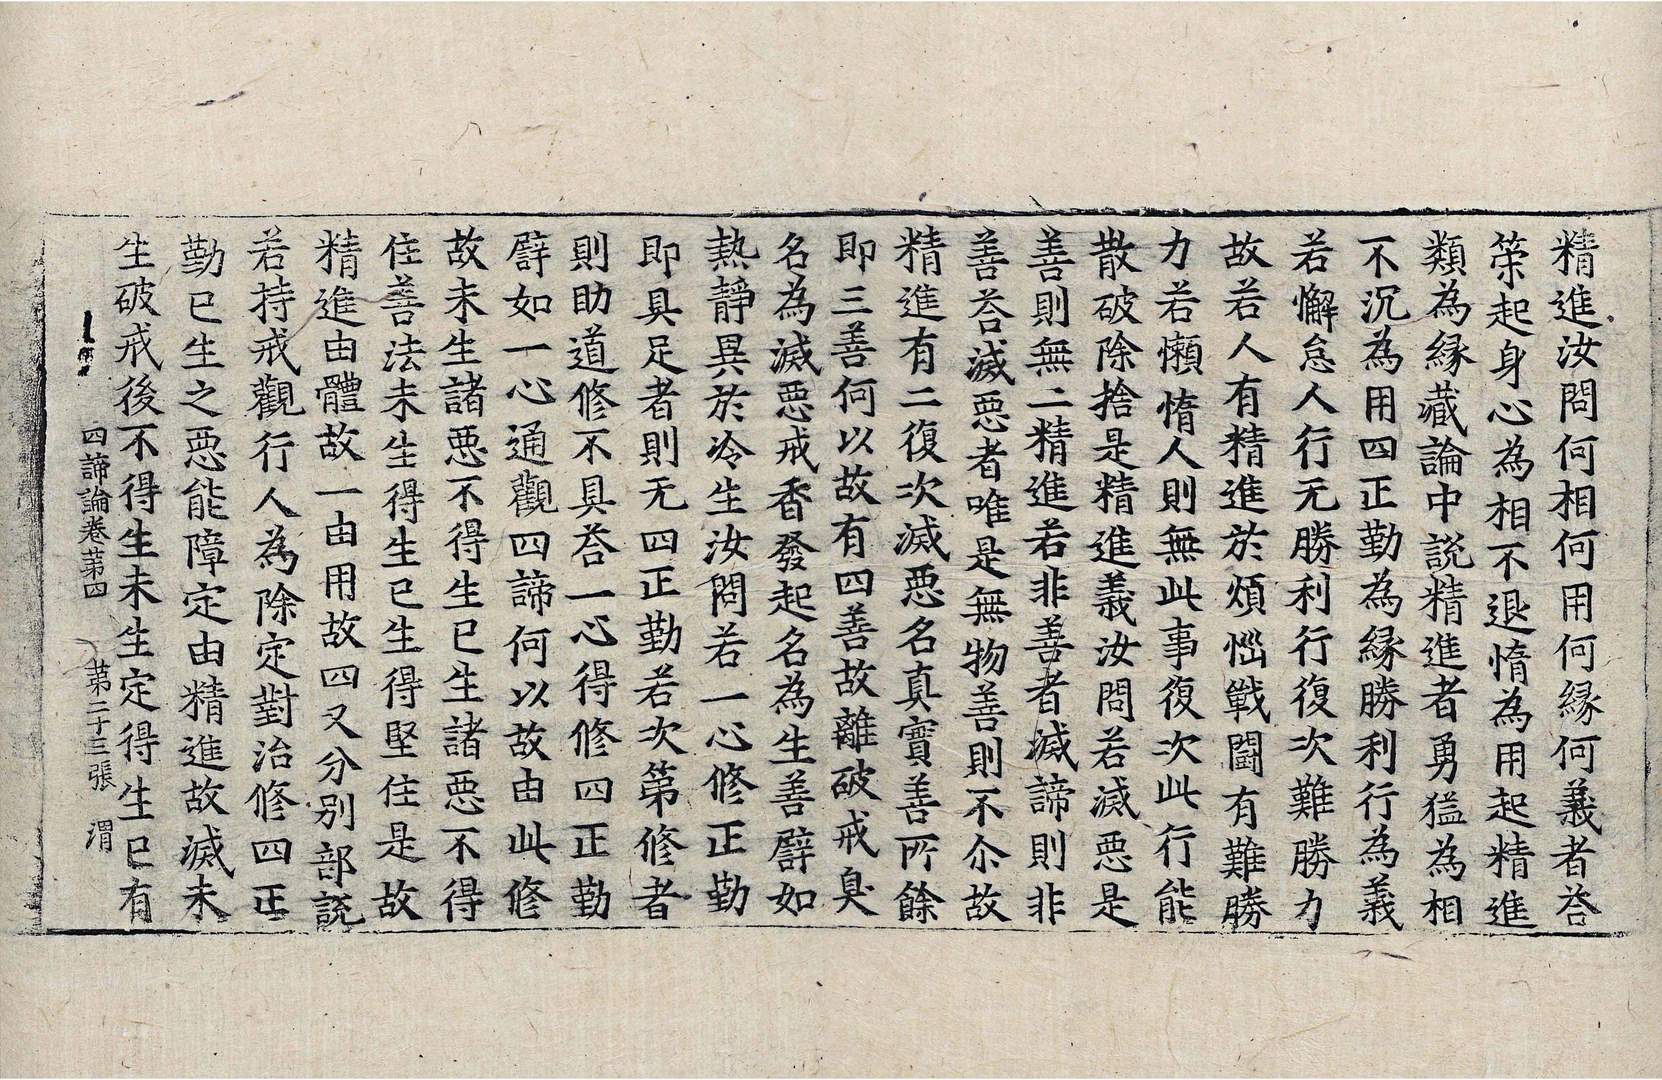 精進汝問何相何用何縁何義者荅
策起身心為相不退惰為用起精進
類為縁藏論中說精進者勇猛為相
不沉為用四正勤為縁勝利行為義
若懈怠人行无勝利行復次難勝力
故若人有精進於煩惱戰鬪有難勝
力若懶惰人則無此事復次此行能
散破除捨是精進義汝問若滅惡是
善則無二精進若非善者滅諦則非
善荅滅惡者唯是無物善則不尒故
精進有二復次滅惡名真實善所餘
即三善何以故有四善故離破戒臭
名為滅惡戒香發起名為生善譬如
熱靜異於冷生汝問若一心修正勤
即具足者則无四正勤若次第修者
則助道修不具荅一心得修四正勤
譬如一心通觀四諦何以故由此修
故未生諸惡不得生已生諸惡不得
住善法未生得生已生得堅住是故
精進由體故一由用故四又分別部說
若持戒觀行人為除定對治修四正
勤已生之惡能障定由精進故滅未
生破戒後不得生未生定得生已有
四諦論卷第四 第二十三張 渭